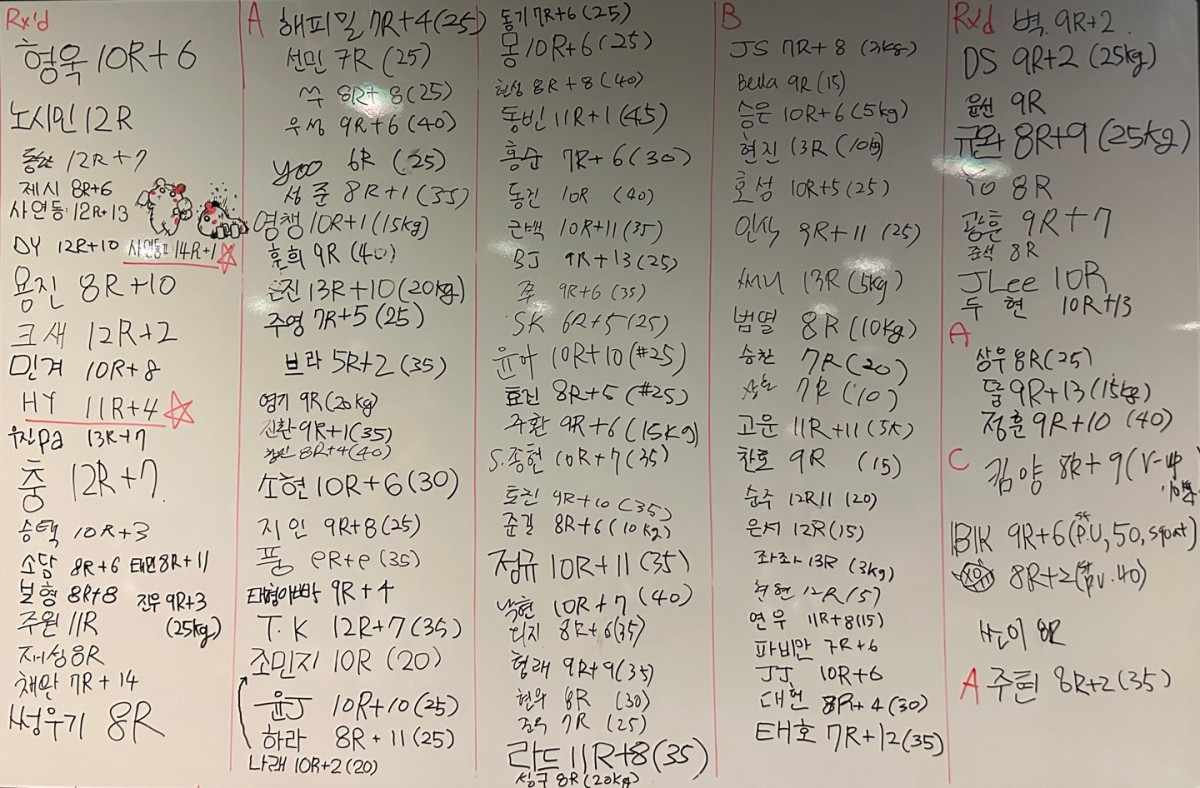 Rx'd
형욱 10R+6
노시민 12R
12R+7
제시 8R+6
사연동 12R+13
DY 12R+10 사연동II 14R+1
용진 8R+10
크새 12R+2
민겨 10R+8
HY 11R+4
우진pa 13R+7
충 12R+7
승택 10R+3
소담 8R+6 태민 8R+11
보형 8R+8 진우 9R+3
주원 11R (25kg)
재성 8R
채완 7R+14
썽우기 8R
A 해피밀 7R+4(25)
선민 7R (25)
쓰 8R+8(25)
우성 9R+6(40)
yoo 6R (25)
성준 8R+1(35)
영챙 10R+1(15kg)
훈희 9R (40)
은진 13R+10(20kg)
주영 7R+5(25)
브라 5R+2(35)
영기 9R(20kg)
진환 9R+1(35)
8R+4(40)
소현 10R+6(30)
지인 9R+8(25)
풍 eR+e(35)
태형아빠 9R+4
T.K 12R+7(35)
조민지 10R (20)
윤J 10R+10(25)
하라 8R+11(25)
나래 10R+2(20)
동기 7R+6(25)
몽 10R+6(25)
현성 8R+8(40)
동빈 11R+1(45)
홍순 7R+6(30)
동진 10R (40)
근백 10R+11(35)
BJ 9R+13(25)
쭈 9R+6(35)
SK 6R+5(25)
윤아 10R+10(#25)
효진 8R+5(#25)
주환 9R+6(15kg)
S.종현 10R+7(35)
효진 9R+10(35)
준길 8R+6(10kg)
정규 10R+11(35)
낙현 10R+7(40)
디지 8R+6(35)
형래 9R+9(35)
현우 8R (30)
7R (25)
라드 11R+8(35)
성구 8R(20kg)
B
JS 7R+8
Bella 9R(15)
승은 10R+6(5kg)
현진 13R
호성 10R+5(25)
인식 9R+11(25)
써니 13R(5kg)
범열 8R(10kg)
승찬 7R(20)
7R(10)
고운 11R+11
찬호 9R (15)
순주 12R11(20)
은서 12R(15)
좌좌 13R(3kg)
12R(15)
연우 11R+8(15)
파비안 7R+6
JJ 10R+6
대현 8R+4(30)
태호 7R+12(35)
Rx'd 벽. 9R+2
DS 9R+2(25kg)
윤선 9R
규완 8R+9(25kg)
YO 8R
광훈 9R+7
준석 8R
JLee 10R
두현 10R+13
A
상우 8R(25)
돌 9R+13(15kg)
정훈 9R+10(40)
C
김양 8R+9(V-up
BIK 9R+6(P.U,50,squat)
8R+2
쏘이 8R
A 주현 8R+2(35)